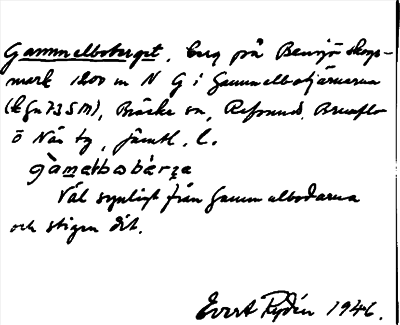 Gammelboberget, berg på Bensjö skogs-
mark 1200 m N G i Gammelbotjärnarna
(kfn 735M), Bräcke sn, Refsund, Brunflo
o Näs tg, Jämtl. l.
gàmełbobárʒe
Väl synligt från Gammelbodarna
och stigen dit.
Evert Rydén 1946.